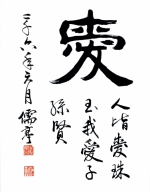 愛
人皆愛珠
玉我愛子
孫賢
二千六年元月 儒亭